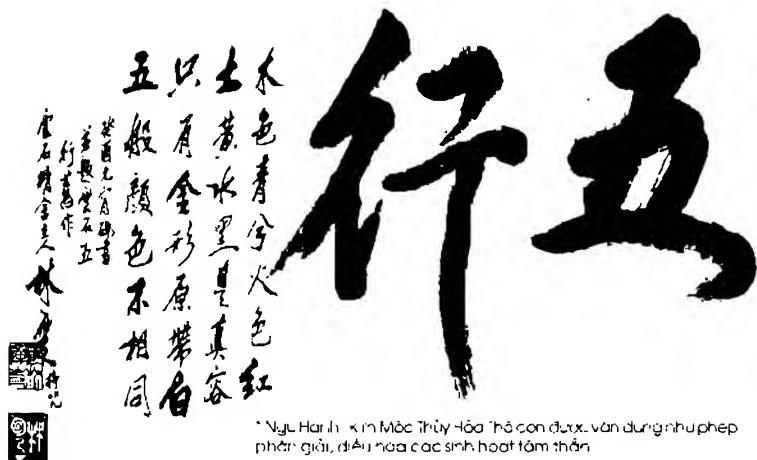 五行
木色青兮火色紅
土黃水黑是真容
只有金形原帶白
五般顏色不相同
癸酉元宵
並題雲石五
行舊作
雲石精舍主人
* Ngũ Hành: Kim Mộc Thủy Hỏa Thổ còn được vận dụng như phép
phân giải, điều hòa các sinh hoạt tâm thần